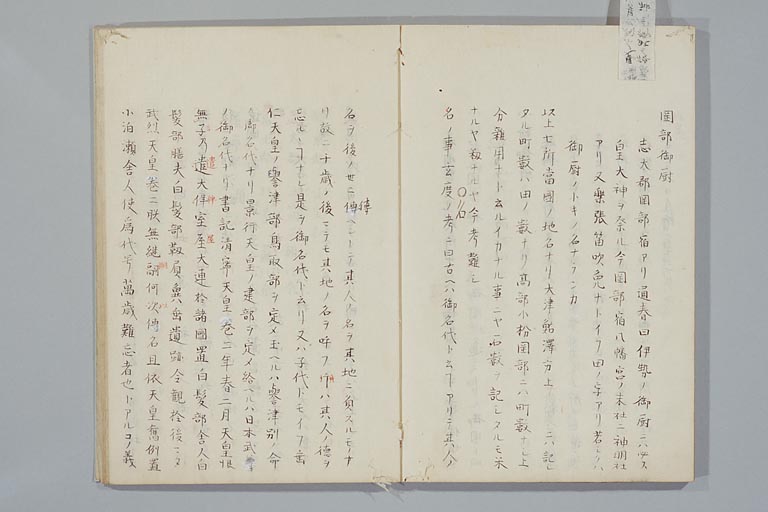 岡部御厨
志太郡岡部宿アリ通春曰伊勢ノ御厨ニハ必ス
皇大神ヲ奈ル今岡部ノ宿八幡宮ノ末社ニ神明社
アリ又楽張笛吹免ナトイフ田ノ字アリ若シクハ
御厨ノトキノ名ナランカ
以上七所當國ノ地名ナリ大津鮎澤方上ノ三ハ記シ
タル町數ハ田ノ數ナリ髙部小杉岡部ニハ町數ナシ上
分雜用ナト云ルイカナル事ニヤ石數ヲ記シタルモ米
ナルヤ穀ナルヤ今考難シ
名ノ事玄度ノ考ニ曰古ヘハ御名代ト云フアリテ其人ノ
名ヲ後ノ世ニ傳ヘント其人ノ名ヲ其地ニ負スルモノナ
リ故ニ千歳ノ後マテモ其地ノ名ヲ呼フ時ハ其人ノ德ヲ
忘ルヽフナシ是ヲ御名代ト云リ又ハ子代トモイフ垂
仁天皇ノ譽津部鳥取部ヲ定メ玉ヘルハ譽津別ノ命
ノ御名代ナリ景行天皇ノ建部ヲ定メ給ヘルハ日本武尊
ノ御名代ナリ書記清寧天皇巻二年春二月天皇恨
無子乃遣大伴室屋大連於諸國置白髪部舎人白
髪部膳夫白髪部靫負冀垂遺跡令觀於後マタ
武烈天皇巻ニ朕無継嗣何以傳名且依天皇舊例置
小泊瀬舎人使爲代号萬歳難忘者也トアルコノ義